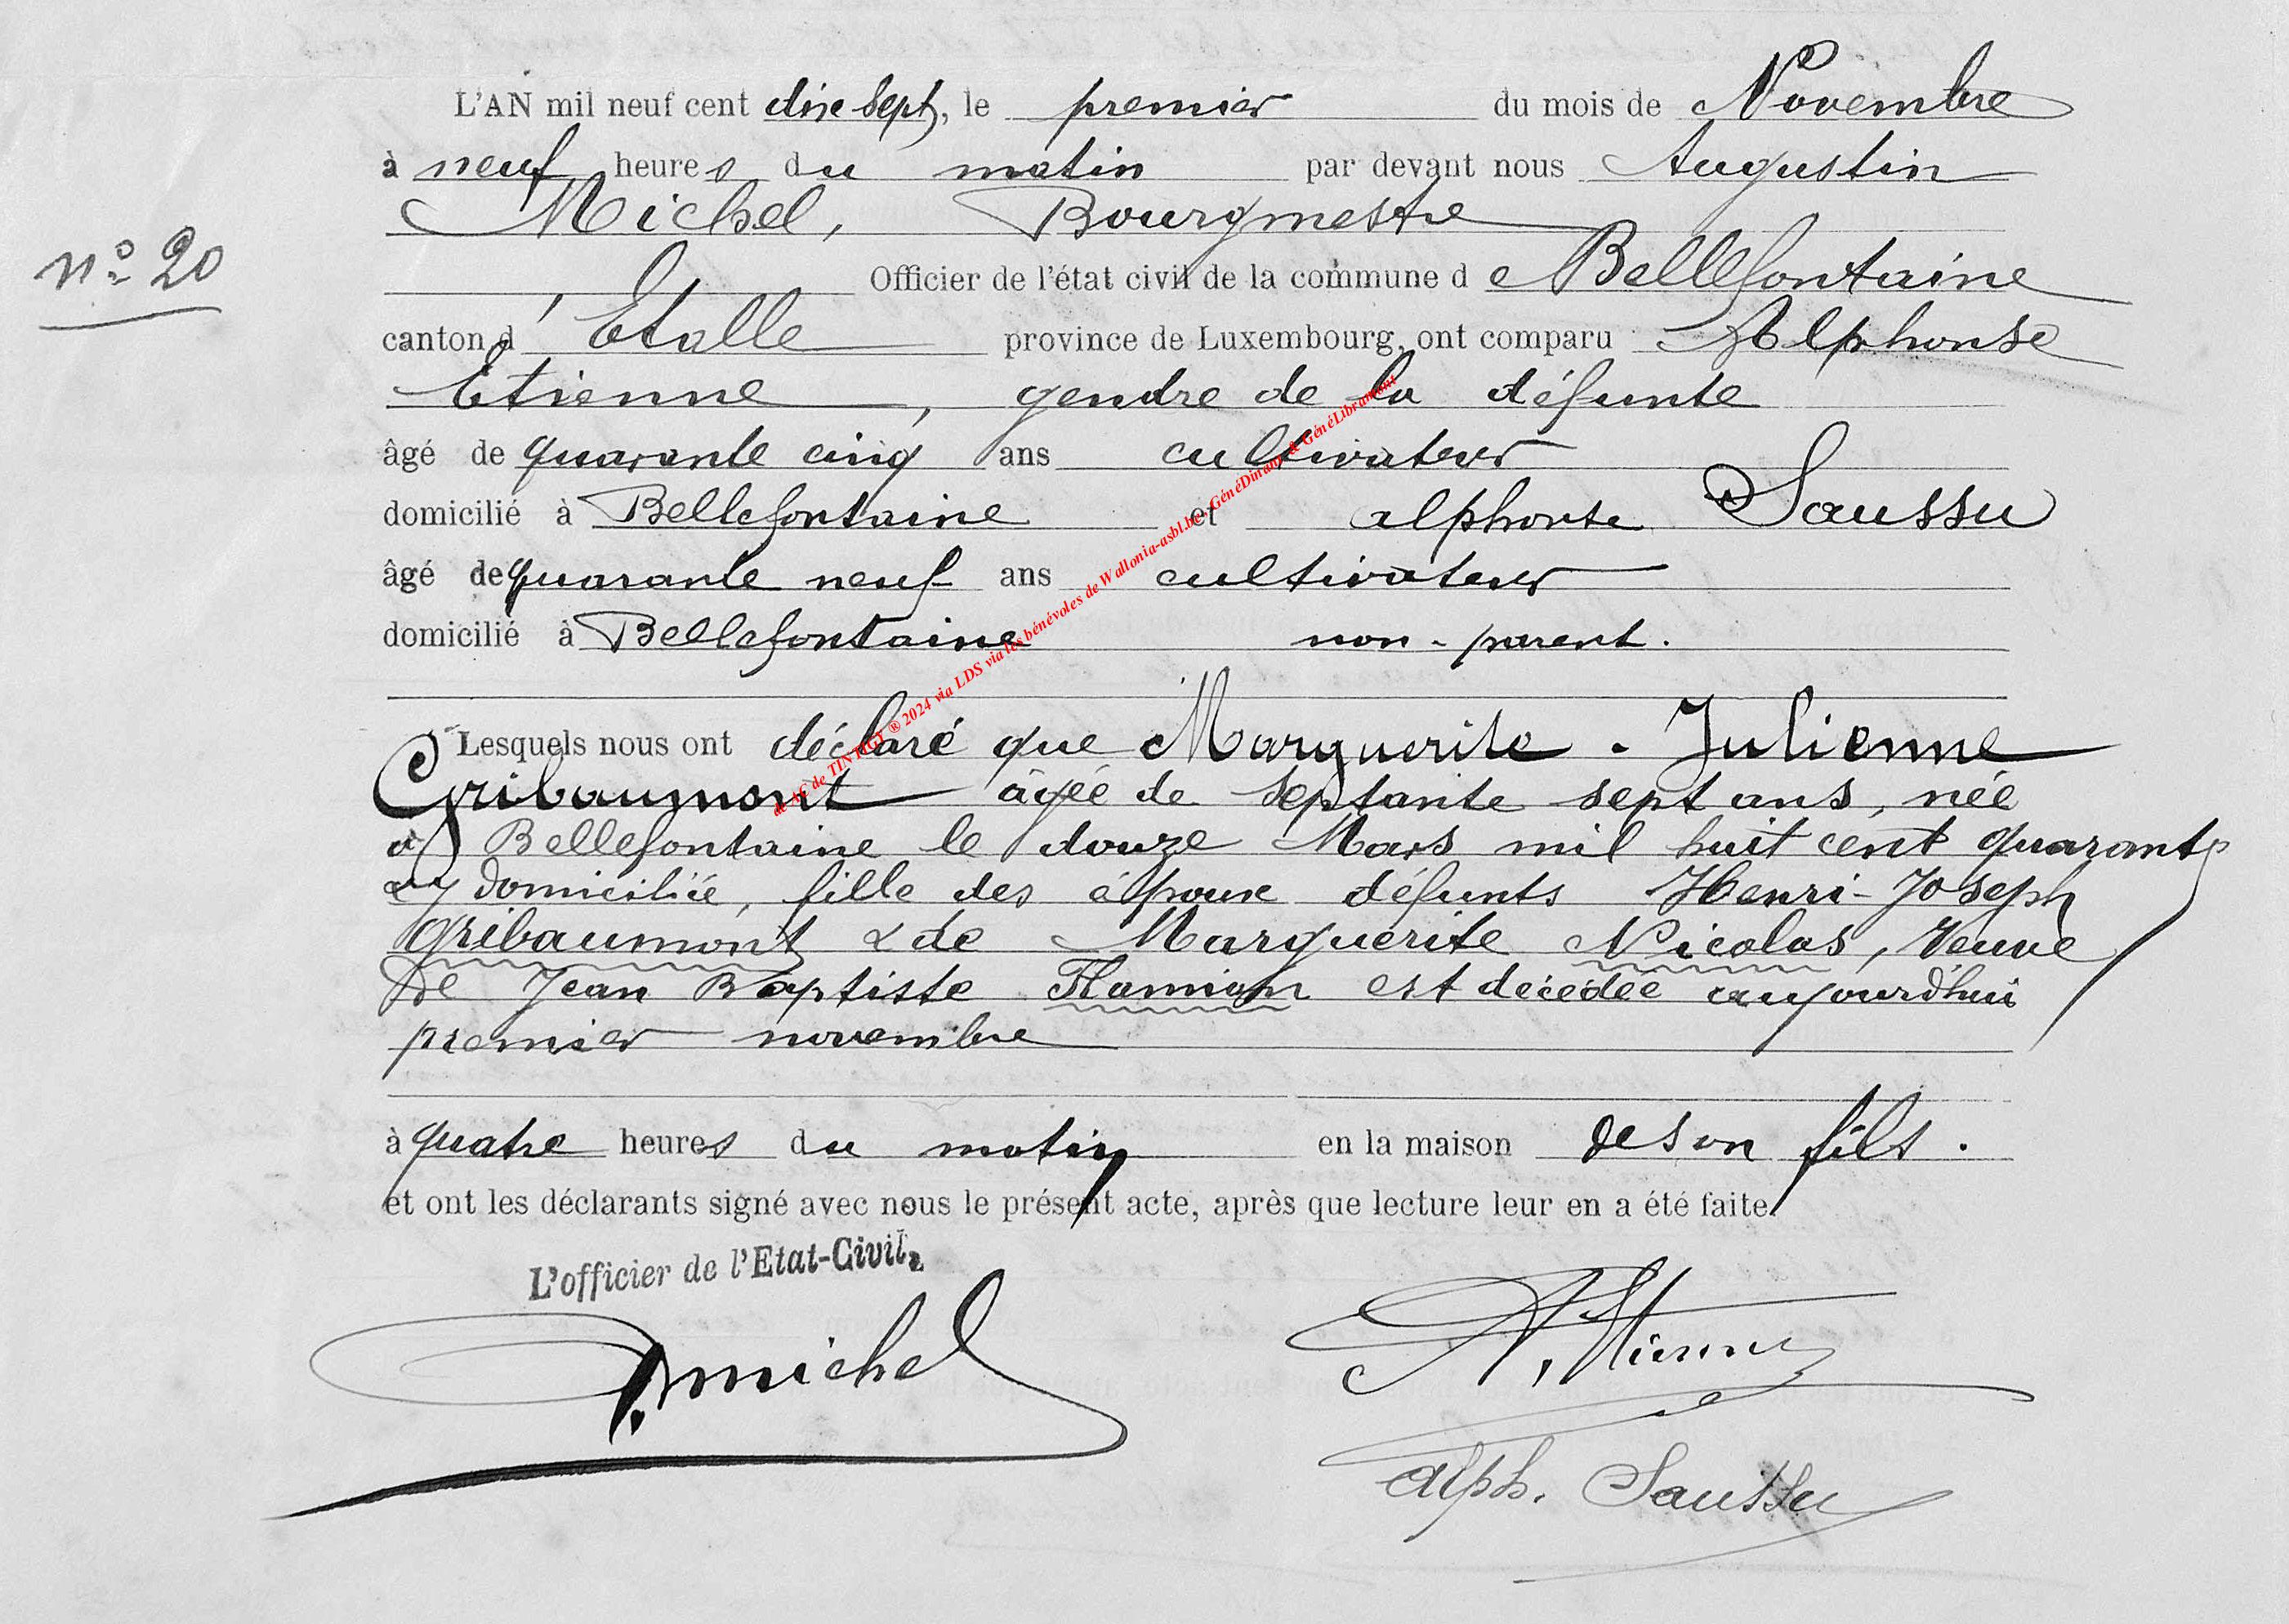 L'AN mil neuf cent dix sept, le premier du mois de Novembre
à neuf heures du matin par devant nous Augustin
Michel, Bourgmestre
n° 20
Officier de l'état civil de la commune de Bellefontaine
canton d'Etalle province de Luxembourg, ont comparu Alphonse
Etienne, gendre de la défunte
âgé de quarante cinq ans cultivateur
domicilié à Bellefontaine et alphonse Saussu
âgé de quarante neuf ans cultivateur
domicilié à Bellefontaine non-parent.
Lesquels nous ont déclaré que Marguerite-Julienne
Gribaumont âgée de septante sept ans, née
à Bellefontaine le douze Mars mil huit cent quarante
& y domiciliée, fille des époux défunts Henri-Joseph
Gribaumont & de Marguerite Nicolas, Veuve
De Jean Baptiste Flamion est décédée aujourd'hui
premier novembre
à quatre heures du matin en la maison de son fils.
et ont les déclarants signé avec nous le présent acte, après que lecture leur en a été faite.
L'officier de l'Etat-Civil,
A. michel
A. Etienne
Alph. Saussu
de AC de TINTIGY ® 2024 via LDS via les bénévoles de Wallonia-asbl.be, GénéDinant & GénéLibramont